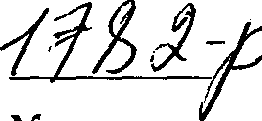 1782-р